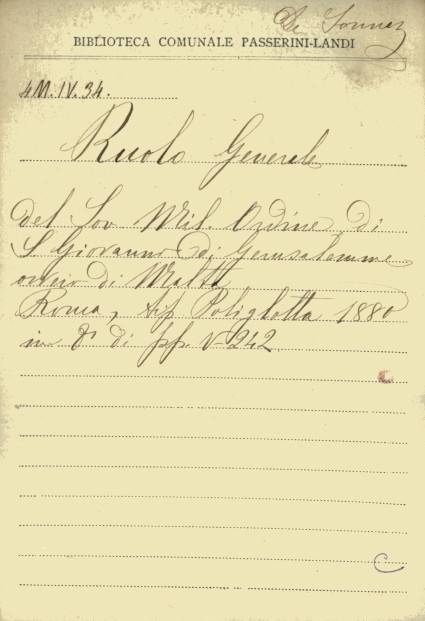 De
BIBLIOTECA COMUNALE PASSERINI-LANDI
4M.IV.34.
Ruolo Generale
del Sov Mil. Ordine di
S Giovanni di Gerusalemme
ovvero di Malta
Roma, tip Poliglotta 1880
in 8° di pp. V-242